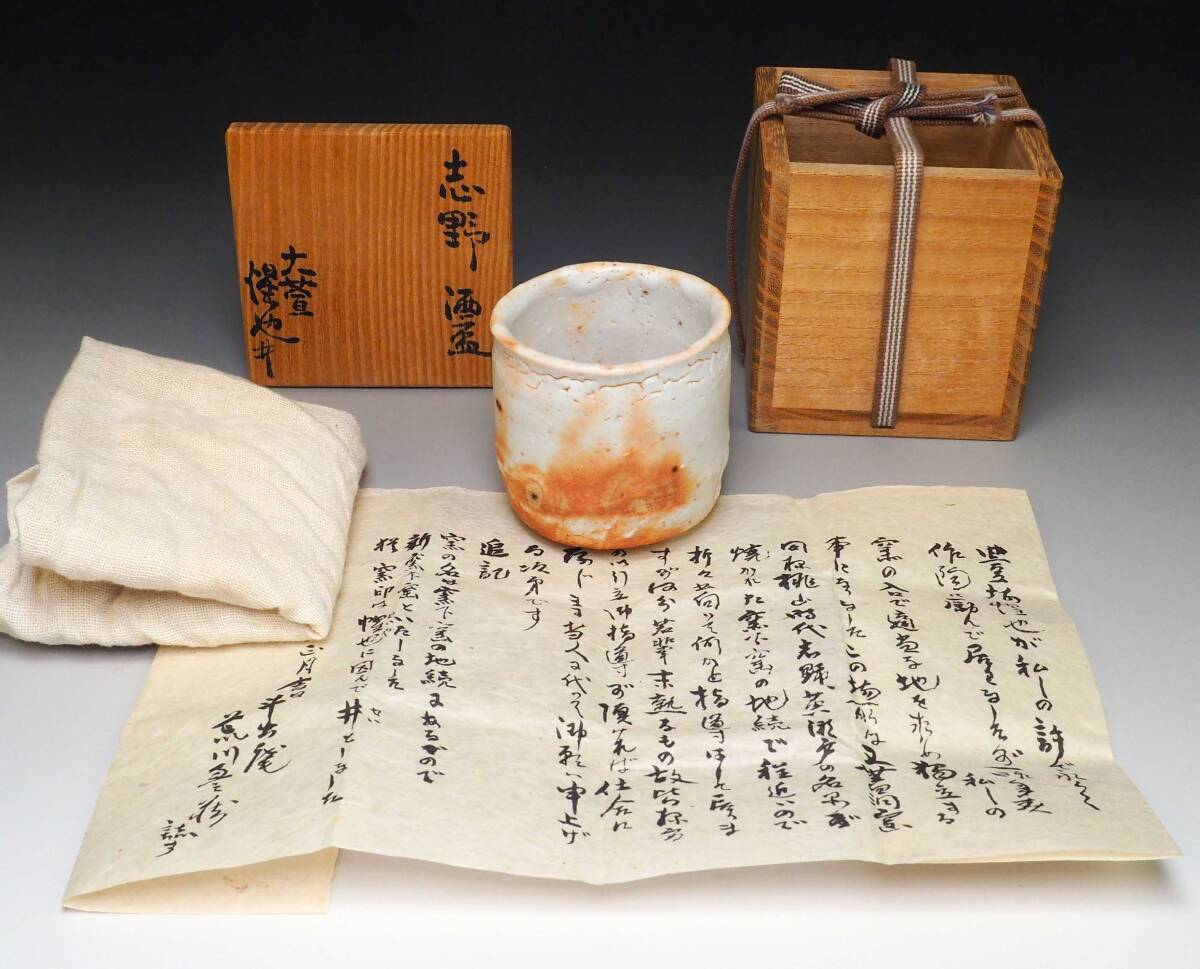 志野 酒盃
大萱
惺也 井
豊場惺也が私しの許で永らく
作陶に励んで居りましたが 私しの
窯の入口で適当な地を求め独立する
事になりました この場所は 牟田洞窯
同様桃山時代志野黄瀬戸の名品が
焼かれた窯下窯の地続で程近いので
折々出向いて何かと指導は致します
すが何分若輩未熟なもの故皆様方
の御引立御指導が頂ければ仕合に
存じます 当人に代って御願い申上げ
る次第です
追記
窯の名は窯下窯の地続にあるので
新窯下窯といたしました
猶窯印は惺也に因んで井としました
正月吉
斗出庵
荒川豊蔵
誌す